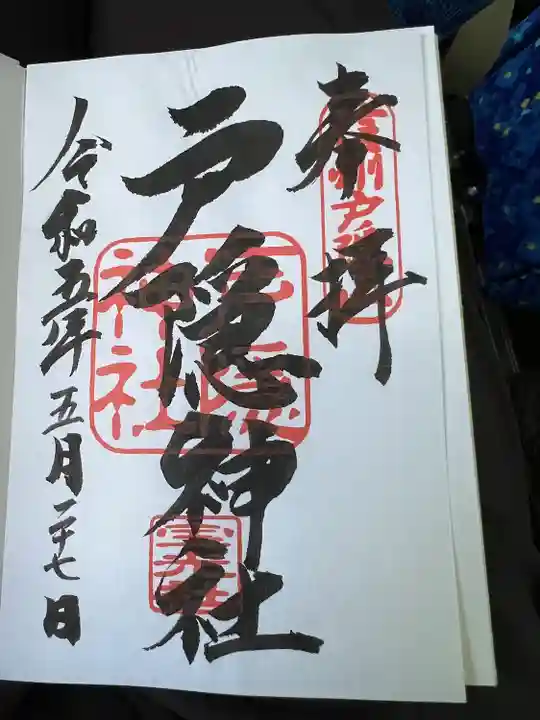 奉拝
信州戸隠
戸隠神社
戸隠神社
令和五年五月二十七日